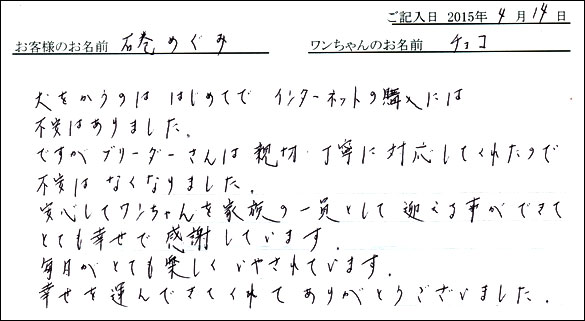 ご記入日 2015年 4月 14日
お客様のお名前 石巻 めぐみ ワンちゃんのお名前 チョコ
犬をかうのは はじめてで インターネットの購入には
不安はありました。
ですが ブリーダーさんは 親切、丁寧に 対応してくれたので
不安は なくなりました。
安心して ワンちゃんを 家族の一員として 迎える事ができて
とても幸せで 感謝しています。
毎日が とても楽しく いやされています。
幸せを運んできてくれて ありがとうございました。